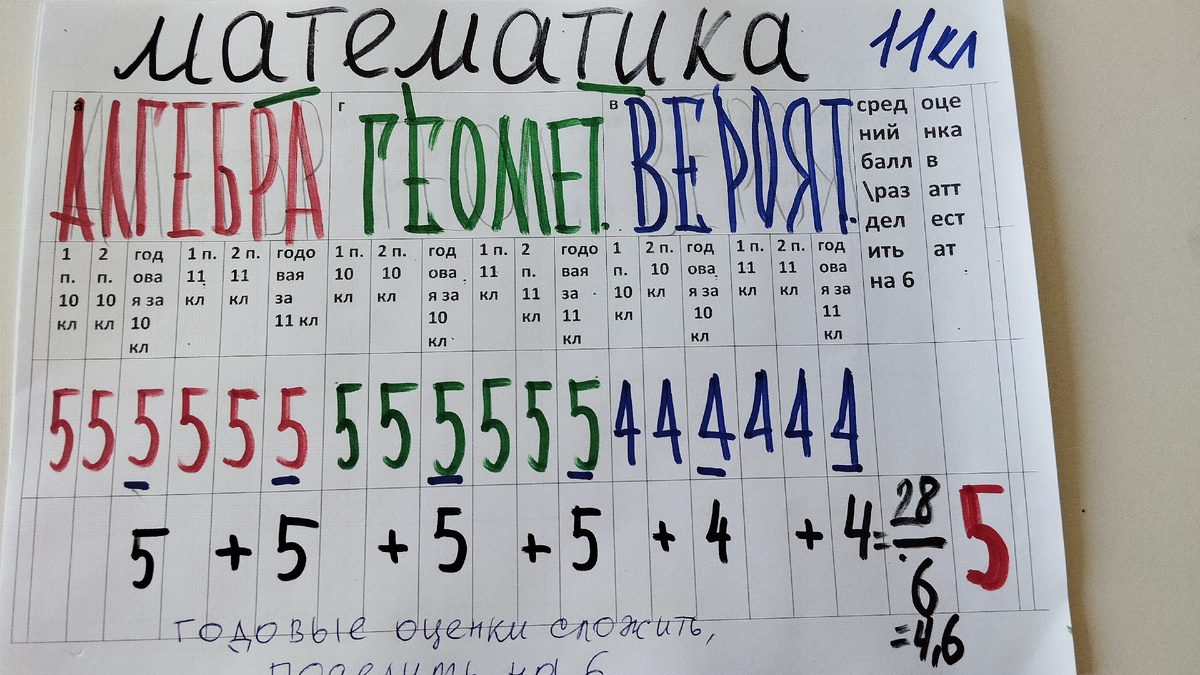 математика 11кл
а АЛГЕБРА г ГЕОМЕТ. в ВЕРОЯТ. сред ний балл \раз дел ить на 6 оце нка в атт ест ат
1 п. 10 кл 2 п. 10 кл год ова я за 10 кл 1 п. 11 кл 2 п. 11 кл годо вая за 11 кл 1 п. 10 кл 2 п. 10 кл год ова я за 10 кл 1 п. 11 кл 2 п. 11 кл годо вая за 11 кл 1 п. 10 кл 2 п. 10 кл год ова я за 10 кл 1 п. 11 кл 2 п. 11 кл год ова я за 11 кл
5 5 5 5 5 5 5 5 5 5 5 5 4 4 4 4 4 4
5 + 5 + 5 + 5 + 4 + 4 = 28 / 6 = 4,6 5
годовые оценки сложить,
поделить на 6